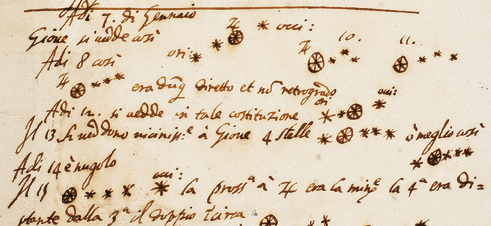 Adi 7. di Gennaio
Gione si vedde così ori: ♃ occi:
Adi 8 così ♃ 10. 11.
♃ era dūq diretto et nō retrogrado
Adi 12. si vedde in tale costituzione ori occi:
Il 13 si veddono vicinissᵉ à Gioue 4 stelle ò meglio così
Adi 14 è nugolo
Il 15 occi: la prossᵃ à ♃ era la minᵉ la 4ᵃ era di=
stante dalla 3ᵃ il doppio circa